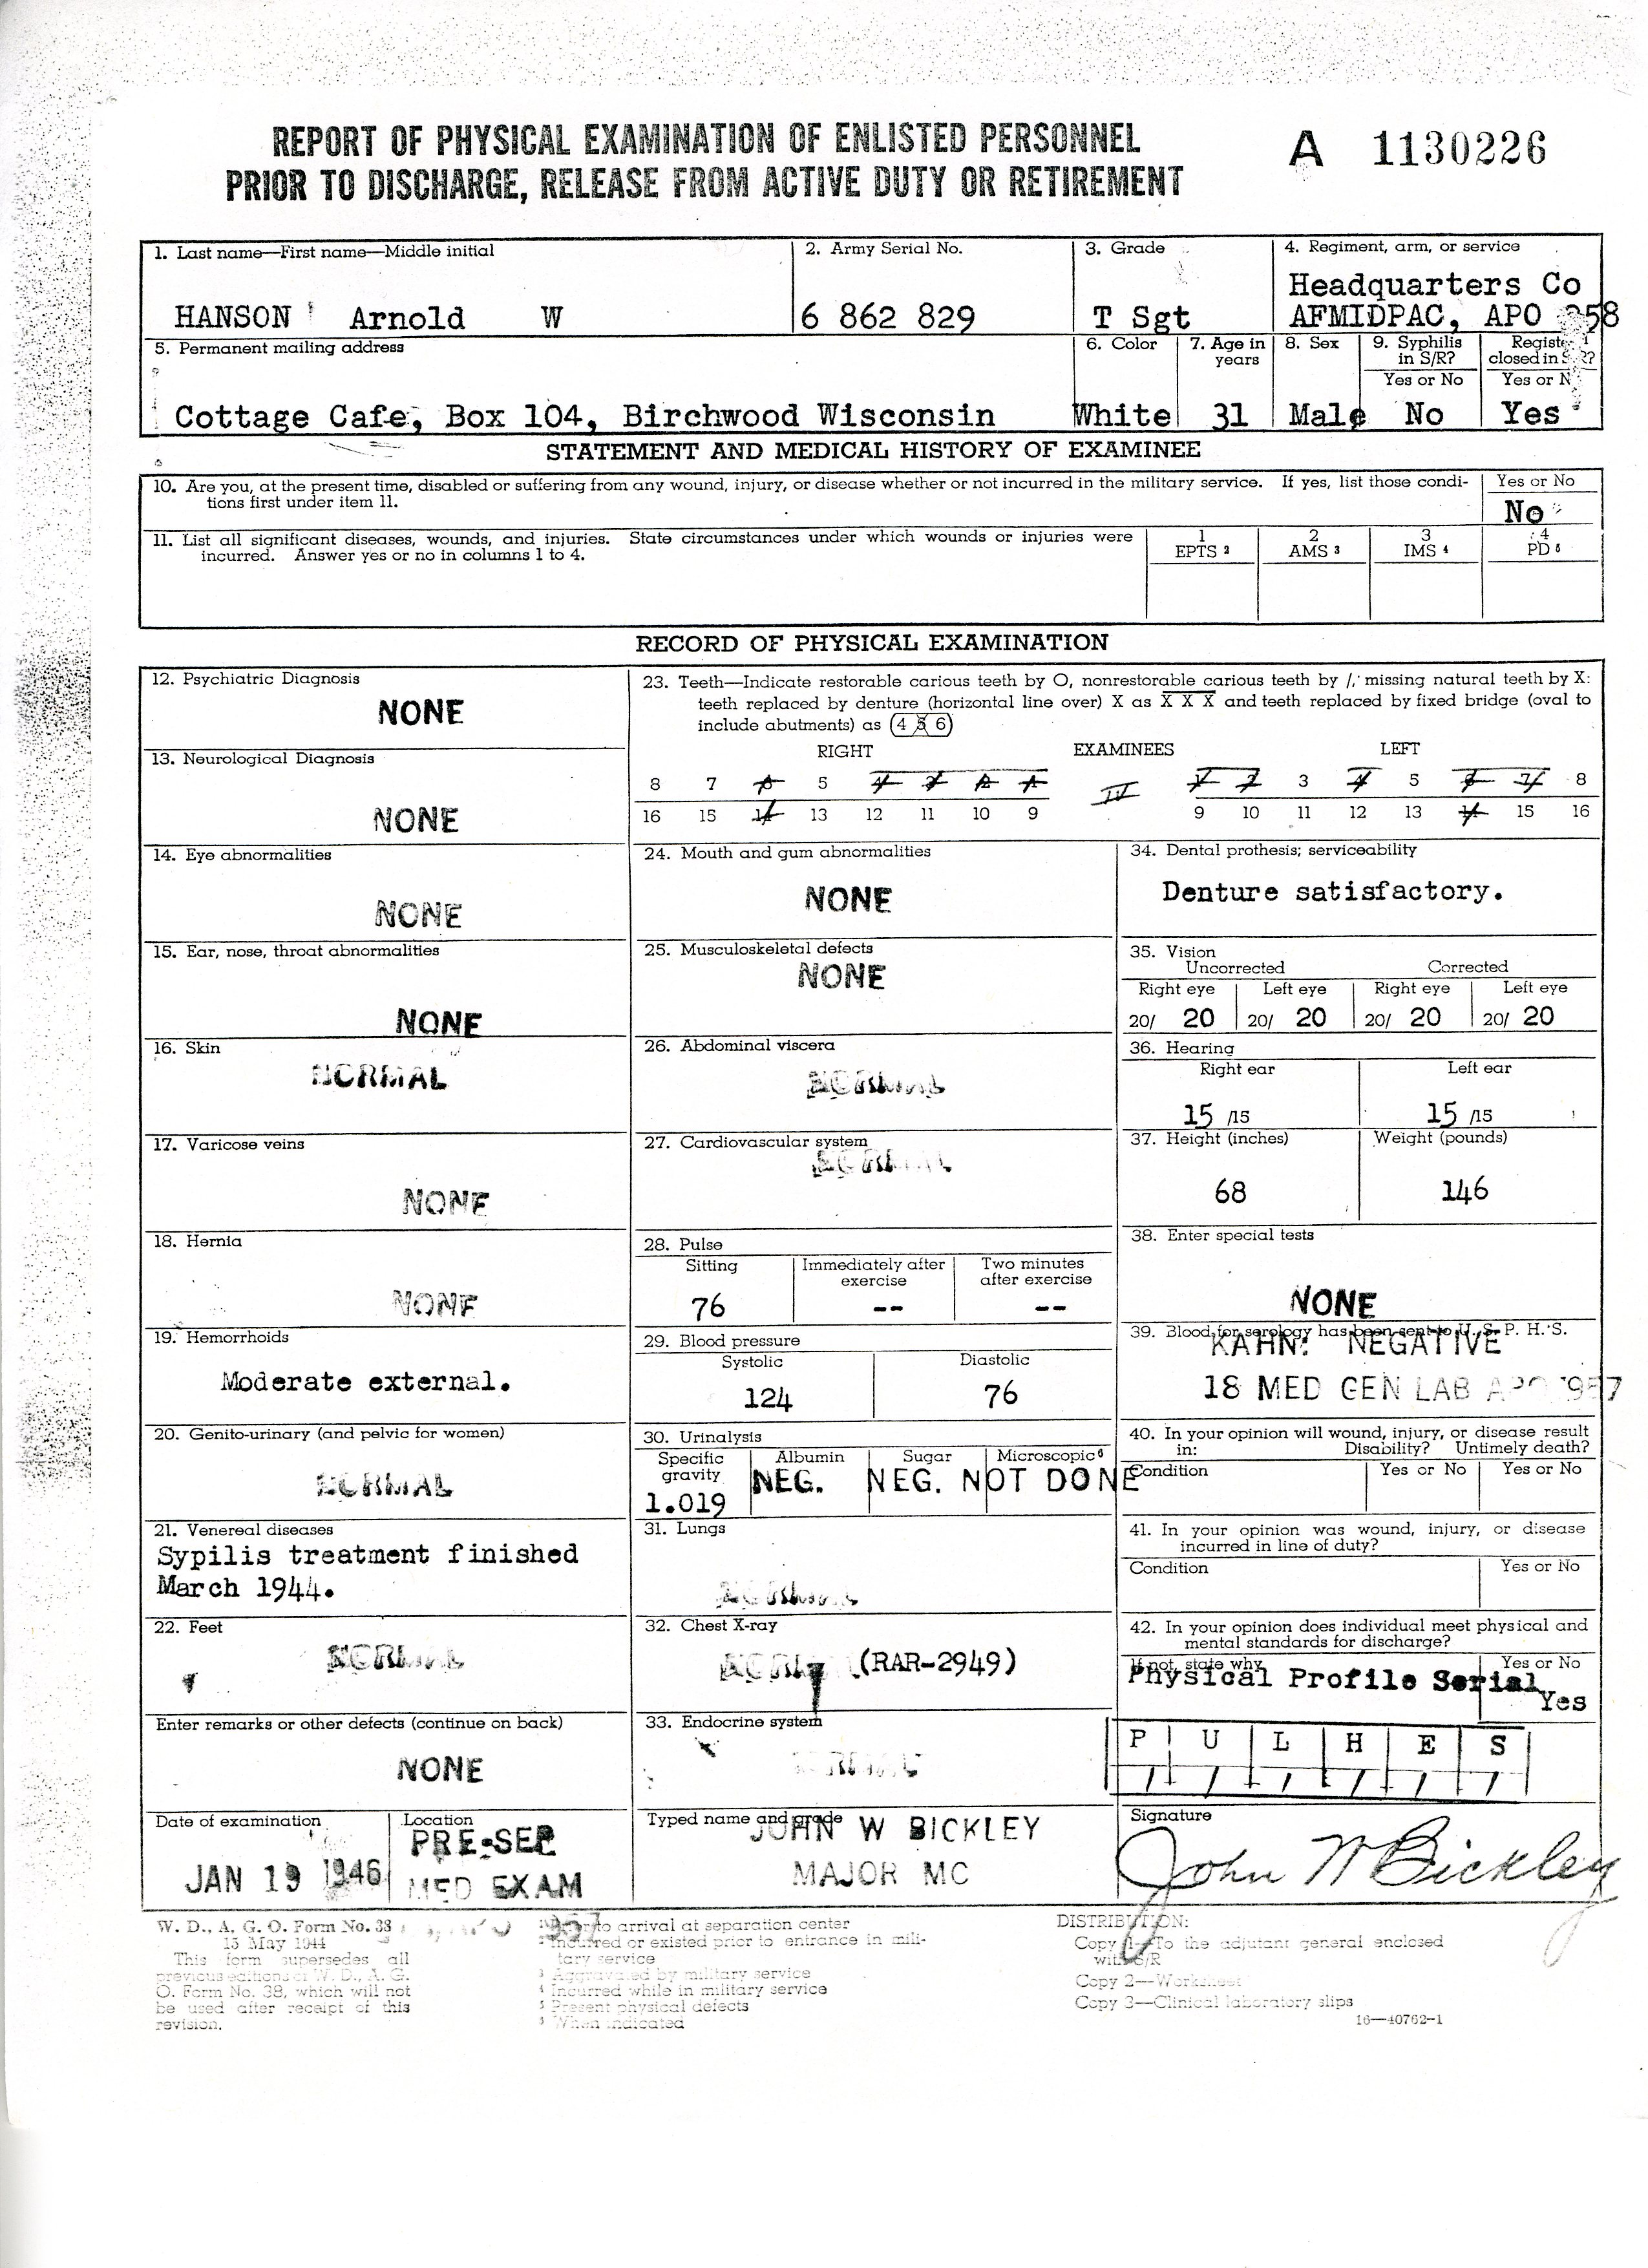 REPORT OF PHYSICAL EXAMINATION OF ENLISTED PERSONNEL
PRIOR TO DISCHARGE, RELEASE FROM ACTIVE DUTY OR RETIREMENT
A 1130226
1. Last name—First name—Middle initial
HANSON Arnold W
2. Army Serial No.
6 862 829
3. Grade
T Sgt
4. Regiment, arm, or service
Headquarters Co
AFMIDPAC, APO 958
5. Permanent mailing address
Cottage Cafe, Box 104, Birchwood Wisconsin
6. Color
White
7. Age in
years
31
8. Sex
Male
9. Syphilis
in S/R?
Yes or No
No
closed in
Yes or N
Yes
STATEMENT AND MEDICAL HISTORY OF EXAMINEE
10. Are you, at the present time, disabled or suffering from any wound, injury, or disease whether or not incurred in the military service. If yes, list those condi-
tions first under item 11.
Yes or No
No
11. List all significant diseases, wounds, and injuries. State circumstances under which wounds or injuries were
incurred. Answer yes or no in columns 1 to 4.
1
EPTS 2
2
AMS 3
3
IMS 4
4
PD 5
RECORD OF PHYSICAL EXAMINATION
12. Psychiatric Diagnosis
NONE
13. Neurological Diagnosis
NONE
14. Eye abnormalities
NONE
15. Ear, nose, throat abnormalities
NONE
16. Skin
NORMAL
17. Varicose veins
NONE
18. Hernia
NONE
19. Hemorrhoids
Moderate external.
20. Genito-urinary (and pelvic for women)
NORMAL
21. Venereal diseases
Sypilis treatment finished
March 1944.
22. Feet
NORMAL
Enter remarks or other defects (continue on back)
NONE
Date of examination
JAN 19 1946
Location
PRE-SEP
MED EXAM
23. Teeth—Indicate restorable carious teeth by O, nonrestorable carious teeth by /, missing natural teeth by X:
teeth replaced by denture (horizontal line over) X as X X X and teeth replaced by fixed bridge (oval to
include abutments) as (4 5 6)
RIGHT EXAMINEES LEFT
8 7 6 5 4 3 2 1 IV 1 2 3 4 5 6 7 8
16 15 14 13 12 11 10 9 9 10 11 12 13 14 15 16
24. Mouth and gum abnormalities
NONE
25. Musculoskeletal defects
NONE
26. Abdominal viscera
NORMAL
27. Cardiovascular system
NORMAL
28. Pulse
Sitting
76
Immediately after
exercise
--
Two minutes
after exercise
--
29. Blood pressure
Systolic
124
Diastolic
76
30. Urinalysis
Specific
gravity
1.019
Albumin
NEG.
Sugar
NEG.
Microscopic 6
NOT DONE
31. Lungs
NORMAL
32. Chest X-ray
NORMAL (RAR-2949)
33. Endocrine system
NORMAL
Typed name and grade
JOHN W BICKLEY
MAJOR MC
34. Dental prothesis; serviceability
Denture satisfactory.
35. Vision
Uncorrected Corrected
Right eye Left eye Right eye Left eye
20/ 20 20/ 20 20/ 20 20/ 20
36. Hearing
Right ear Left ear
15 /15 15 /15
37. Height (inches) Weight (pounds)
68 146
38. Enter special tests
NONE
39. Blood for serology has been sent to U. S. P. H. S.
KAHN: NEGATIVE
18 MED GEN LAB APO 957
40. In your opinion will wound, injury, or disease result
in: Disability? Untimely death?
Condition Yes or No Yes or No
41. In your opinion was wound, injury, or disease
incurred in line of duty?
Condition Yes or No
42. In your opinion does individual meet physical and
mental standards for discharge?
If not, state why Yes or No
Physical Profile Serial Yes
P U L H E S
1 1 1 1 1 1
Signature
John W Bickley
W. D., A. G. O. Form No. 38
15 May 1944
This form supersedes all
previous editions of W. D., A. G.
O. Form No. 38, which will not
be used after receipt of this
revision.
957
1 Prior to arrival at separation center
2 Incurred or existed prior to entrance in mili-
tary service
3 Aggravated by military service
4 Incurred while in military service
5 Present physical defects
6 When indicated
DISTRIBUTION:
Copy 1—To the adjutant general enclosed
with S/R
Copy 2—Worksheet
Copy 3—Clinical laboratory slips
16—40762-1